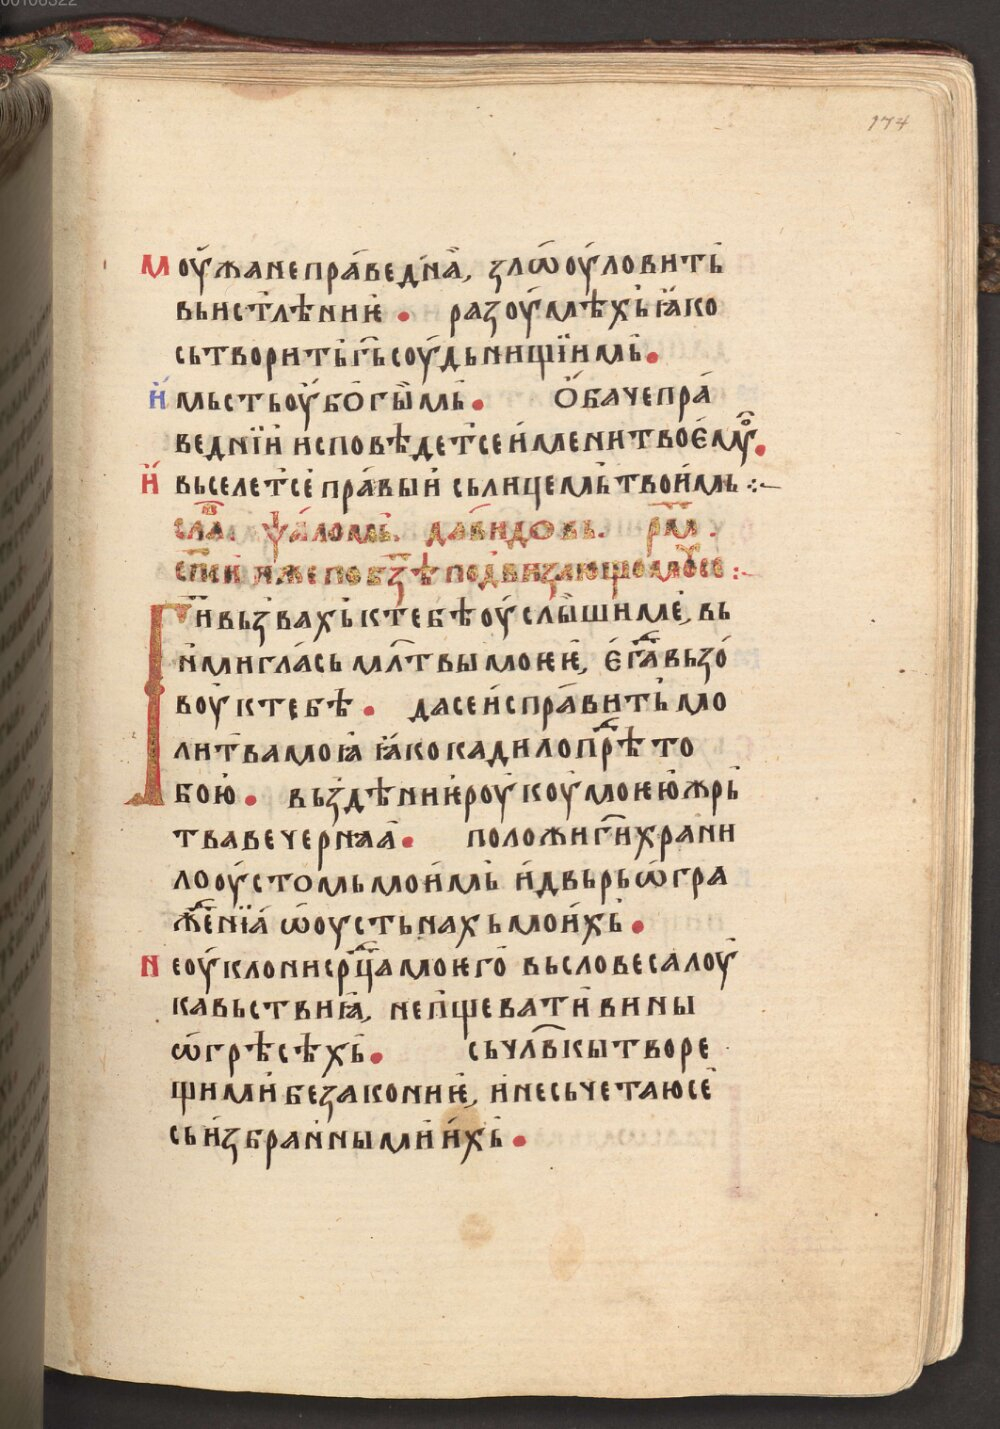 00106322
174
Моу҆жа непра́ведн́а, зло̑ оу҆ловить
вьистлѣник. разоу҆мѣхь ꙗ҆ко
сьтворить г҃ь соу́дьнищїимь.
И҆мьсть оу҆бо́гы̏мь. О҆баче пра́
веднїи исповѣдетсе и҆мени твоѐмꙋ̑.
И҆ вьселетсе пра́вый сь лицемь твои́мь :~
сла҇. ѱа́ломь. дав́идовь. р҃м.
сп҃ск иже по бз҃ѣ подвизающомоусе :~
Г҃и вьзвахь к тебѣ оу҆слы̏ши ме́, вь
н҆ми гла́сь мл҃твы моѥѥ, є҆гда̑ вьзо́
воу҆ к тебѣ. да се и҆спра́вить мо
литва моꙗ ꙗ҆ко кадило прѣ̑ то
бою̀. вьздѣниѥ роу҆коу҆ моѥю̀ жрь
тва вечернаа̀. положи г҃и храни
ло оу҆стомь мои́мь и҆ двьрь ѡ҆гра
женїа́ ѡ оустьнахь мои́хь.
Не оу҆клони ср҃ца моѥго̀ вь словеса лоу҆
кавьствиꙗ, непщевати̏ вины
ѡ҆ грѣсѣхь. сь чл҃вкы творе
щими̏ безакониѥ, и҆ не сьчетаюсе̏
сь и҆збран́ными и́хь.